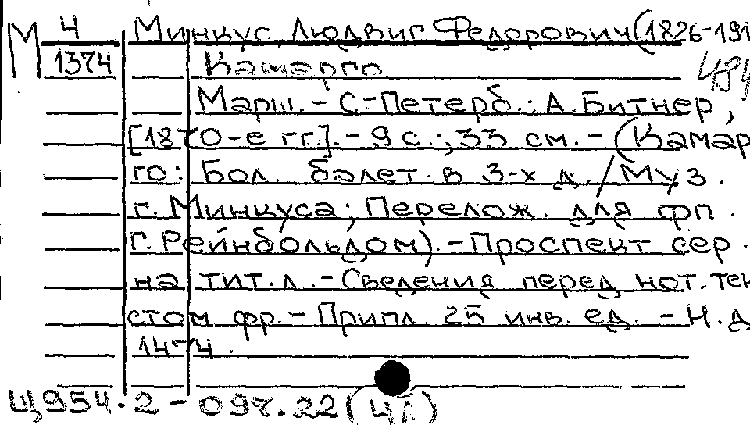 М 4 Минкус, Людвиг Федорович (1826-191
1374 Камарго 484
Марш. - С-Петерб.: А. Битнер,
[1870-е гг.]. - 9 с.; 33 см. - (Камар
го: Бол. балет. в 3-х д. / Муз.
г. Минкуса; Перелож. для фп.
Г. Рейнбольдом). - Проспект сер.
на тит. л. - Сведения перед нот. тек
стом фр. - Припл. 25 инв. ед. - Н. д.
1474.
Щ954.2-098.22